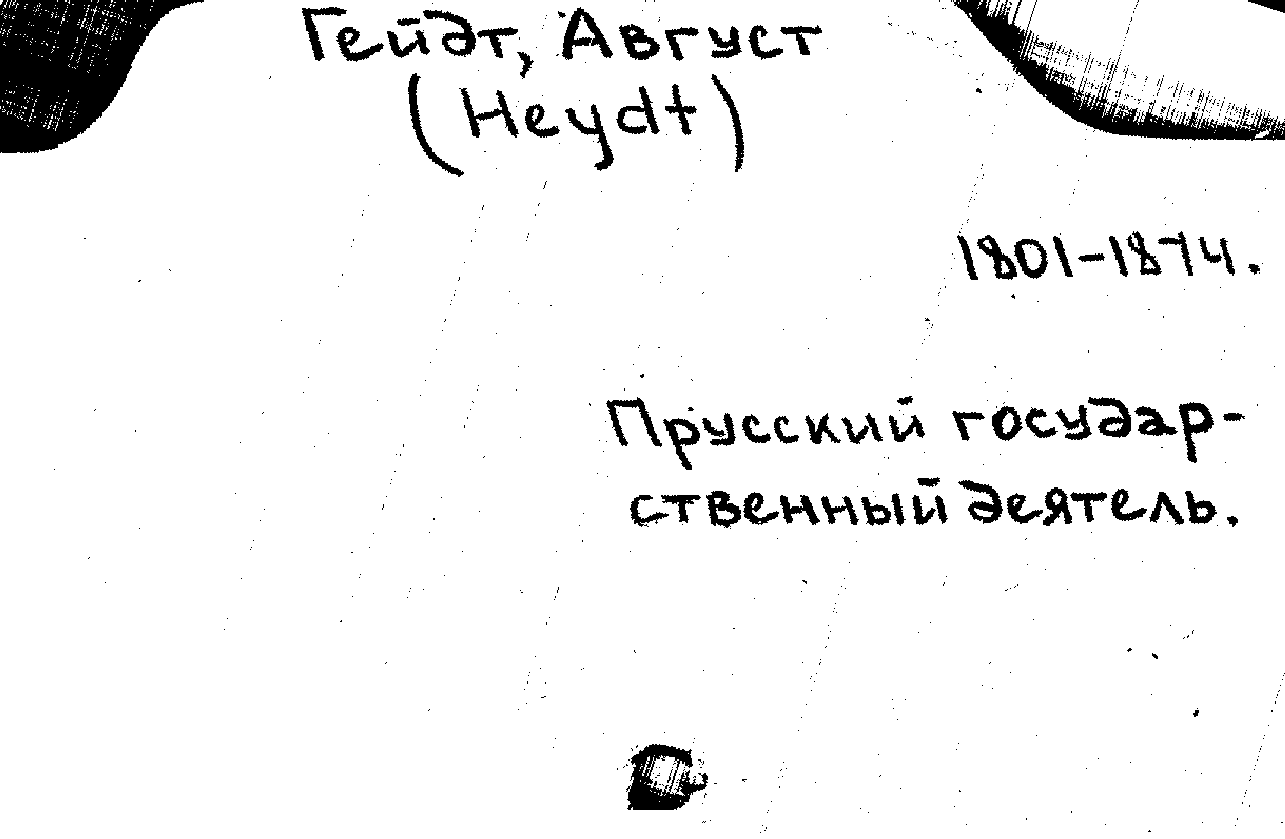 Гейдт, Август
(Heydt)
1801-1874.
Прусский государ-
ственный деятель.